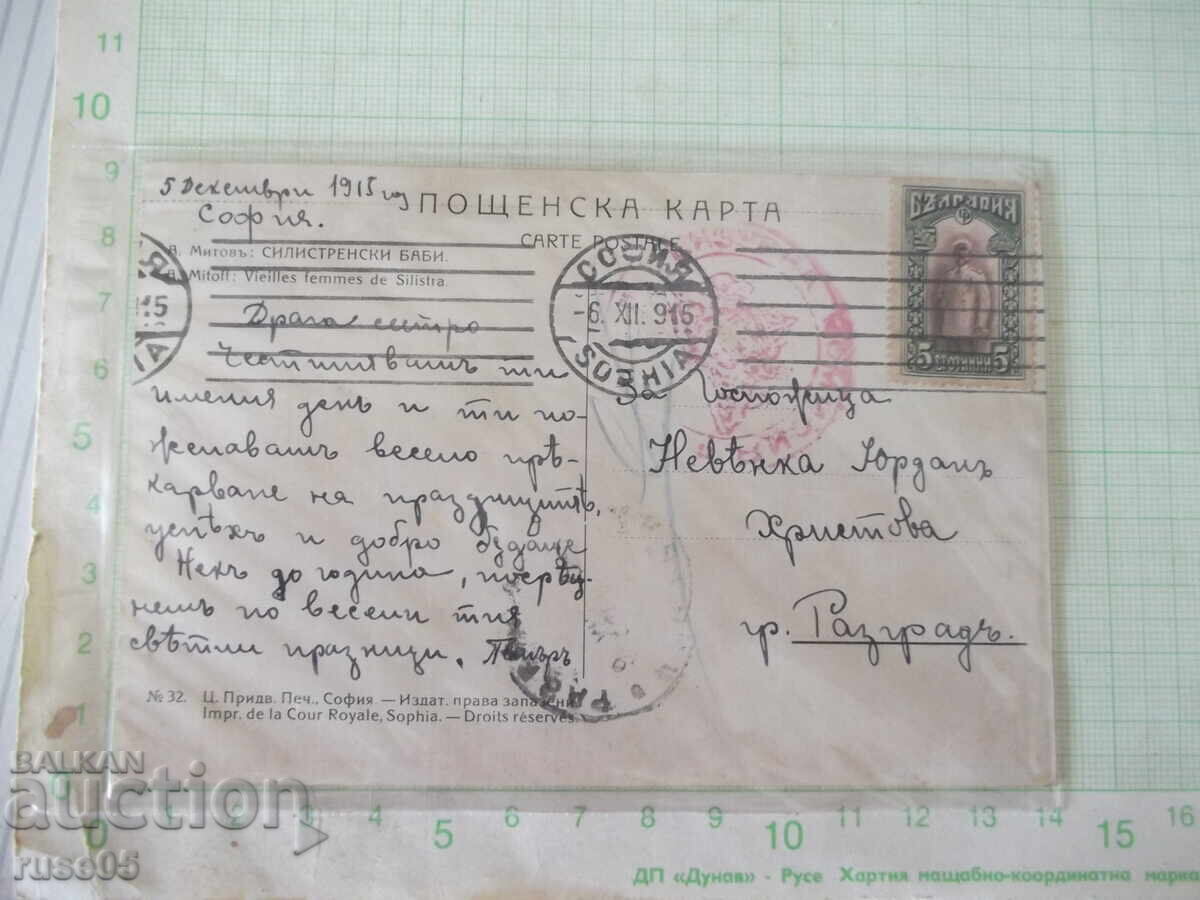 11
10
9
8
7
6
5
4
3
2
1
0
5 Декември 1915 год
София.
ПОЩЕНСКА КАРТА
CARTE POSTALE
А. Митовъ: СИЛИСТРЕНСКИ БАБИ.
A. Mitoff: Vieilles femmes de Silistra.
БЪЛГАРИЯ
5 СТОТИНКИ 5
СОФИЯ
-6. XII. 915
SOPHIA
Драга сестро
Честитявамъ ти
имения день и ти по-
желавамъ весело прѣ-
карване на празницитѣ,
успѣхъ и добро бѫдаще
Некъ до година, посрѣщ-
немъ по весели тия
свѣтли празници. Петъръ
За Госпожица
Невѣнка Юрданъ
Христова
гр. Разградъ.
№ 32. Ц. Придв. Печ., София. — Издат. права запазени.
Impr. de la Cour Royale, Sophia. — Droits réservés.
BALKAN
auction
ruse05
0 1 2 3 4 5 6 7 8 9 10 11 12 13 14 15 16
ДП «Дунав» - Русе Хартия мащабно-координатна марка